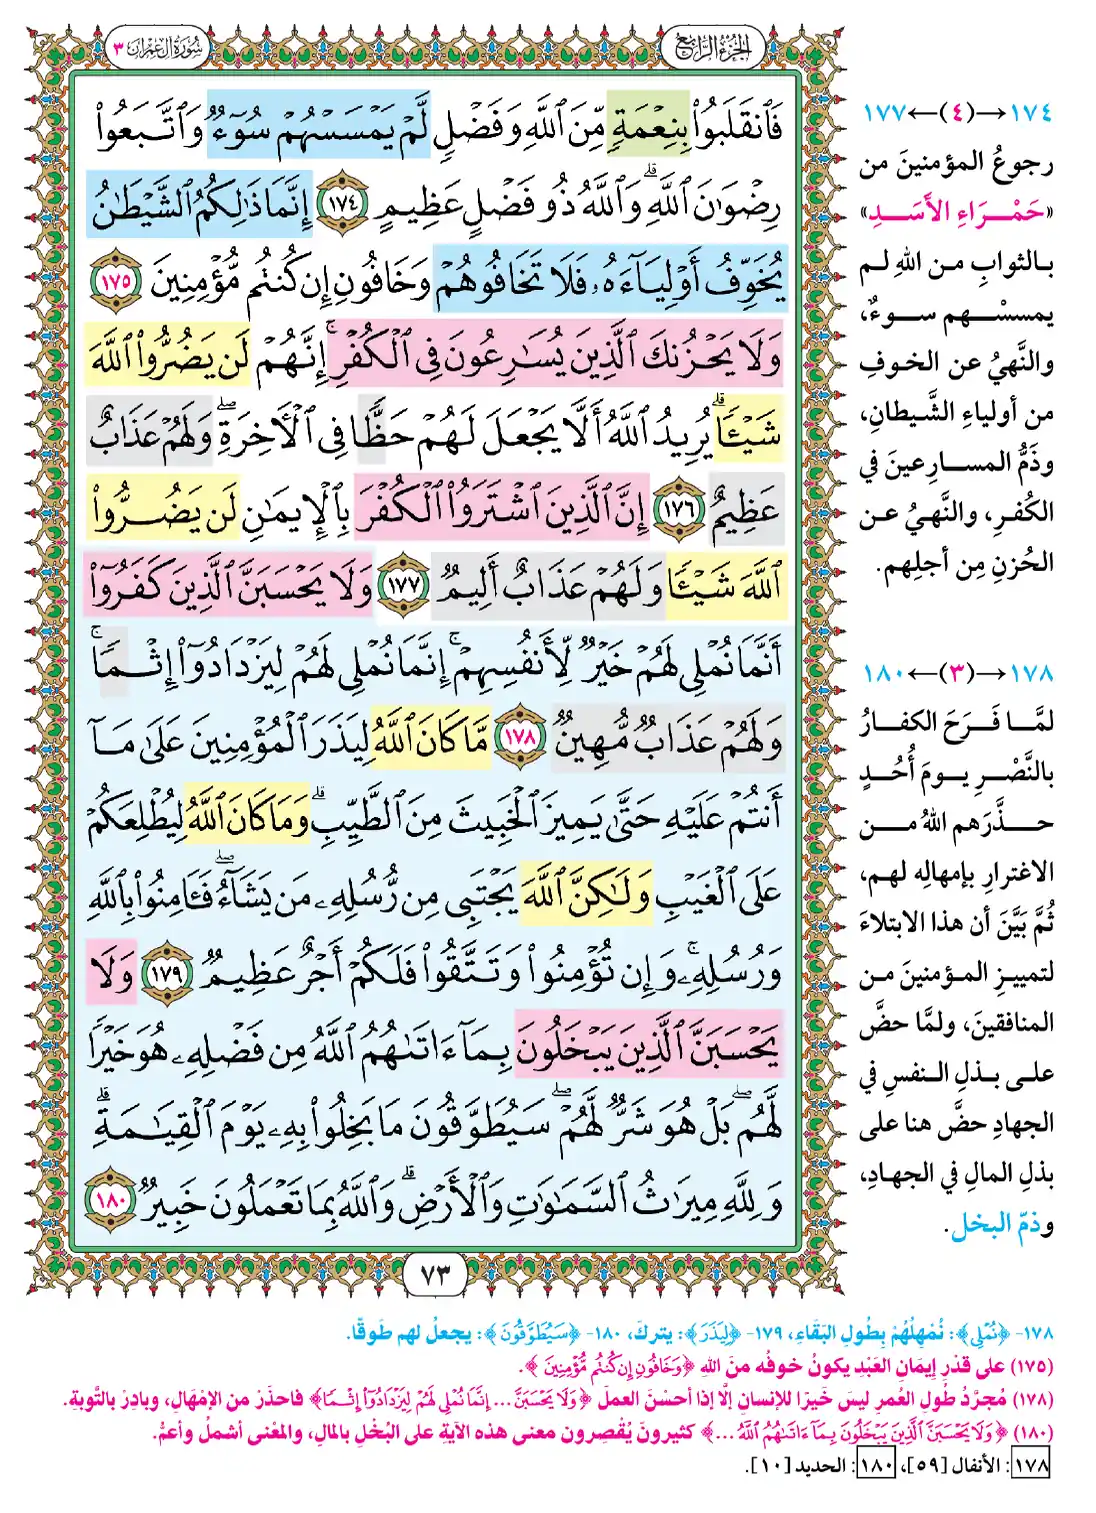 الجزء الرابع
سورة آل عمران ٣
فَٱنقَلَبُوا۟ بِنِعْمَةٍ مِّنَ ٱللَّهِ وَفَضْلٍ لَّمْ يَمْسَسْهُمْ سُوٓءٌ وَٱتَّبَعُوا۟
رِضْوَٰنَ ٱللَّهِ ۗ وَٱللَّهُ ذُو فَضْلٍ عَظِيمٍ ١٧٤ إِنَّمَا ذَٰلِكُمُ ٱلشَّيْطَـٰنُ
يُخَوِّفُ أَوْلِيَآءَهُۥ فَلَا تَخَافُوهُمْ وَخَافُونِ إِن كُنتُم مُّؤْمِنِينَ ١٧٥
وَلَا يَحْزُنكَ ٱلَّذِينَ يُسَـٰرِعُونَ فِى ٱلْكُفْرِ ۚ إِنَّهُمْ لَن يَضُرُّوا۟ ٱللَّهَ
شَيْـًٔا ۗ يُرِيدُ ٱللَّهُ أَلَّا يَجْعَلَ لَهُمْ حَظًّا فِى ٱلْـَٔاخِرَةِ ۖ وَلَهُمْ عَذَابٌ
عَظِيمٌ ١٧٦ إِنَّ ٱلَّذِينَ ٱشْتَرَوُا۟ ٱلْكُفْرَ بِٱلْإِيمَـٰنِ لَن يَضُرُّوا۟
ٱللَّهَ شَيْـًٔا وَلَهُمْ عَذَابٌ أَلِيمٌ ١٧٧ وَلَا يَحْسَبَنَّ ٱلَّذِينَ كَفَرُوٓا۟
أَنَّمَا نُمْلِى لَهُمْ خَيْرٌ لِّأَنفُسِهِمْ ۚ إِنَّمَا نُمْلِى لَهُمْ لِيَزْدَادُوٓا۟ إِثْمًا ۚ
وَلَهُمْ عَذَابٌ مُّهِينٌ ١٧٨ مَّا كَانَ ٱللَّهُ لِيَذَرَ ٱلْمُؤْمِنِينَ عَلَىٰ مَآ
أَنتُمْ عَلَيْهِ حَتَّىٰ يَمِيزَ ٱلْخَبِيثَ مِنَ ٱلطَّيِّبِ ۗ وَمَا كَانَ ٱللَّهُ لِيُطْلِعَكُمْ
عَلَى ٱلْغَيْبِ وَلَـٰكِنَّ ٱللَّهَ يَجْتَبِى مِن رُّسُلِهِۦ مَن يَشَآءُ ۖ فَـَٔامِنُوا۟ بِٱللَّهِ
وَرُسُلِهِۦ ۚ وَإِن تُؤْمِنُوا۟ وَتَتَّقُوا۟ فَلَكُمْ أَجْرٌ عَظِيمٌ ١٧٩ وَلَا
يَحْسَبَنَّ ٱلَّذِينَ يَبْخَلُونَ بِمَآ ءَاتَىٰهُمُ ٱللَّهُ مِن فَضْلِهِۦ هُوَ خَيْرًا
لَّهُم ۖ بَلْ هُوَ شَرٌّ لَّهُمْ ۖ سَيُطَوَّقُونَ مَا بَخِلُوا۟ بِهِۦ يَوْمَ ٱلْقِيَـٰمَةِ ۗ
وَلِلَّهِ مِيرَٰثُ ٱلسَّمَـٰوَٰتِ وَٱلْأَرْضِ ۗ وَٱللَّهُ بِمَا تَعْمَلُونَ خَبِيرٌ ١٨٠
٧٣
١٧٤←(٤)→١٧٧
رجوعُ المؤمنينَ من
«حَمْرَاءِ الأَسَدِ»
بالثوابِ من اللهِ لم
يمسسْهم سوءٌ،
والنَّهيُ عن الخوفِ
من أولياءِ الشَّيطانِ،
وذَمُّ المسارعينَ في
الكُفرِ، والنَّهيُ عن
الحُزنِ مِن أجلِهم.
١٧٨←(٣)→١٨٠
لمَّا فَرَحَ الكفارُ
بالنَّصْرِ يومَ أُحُدٍ
حذَّرَهم اللهُ من
الاغترارِ بإمهالِه لهم،
ثُمَّ بَيَّنَ أن هذا الابتلاءَ
لتمييزِ المؤمنينَ من
المنافقينَ، ولمَّا حضَّ
على بذلِ النفسِ في
الجهادِ حضَّ هنا على
بذلِ المالِ في الجهادِ،
وذمّ البخل.
١٧٨- ﴿نُمْلِي﴾: نُمْهِلُهُمْ بِطُولِ البَقَاءِ، ١٧٩- ﴿لِيَذَرَ﴾: يتركَ، ١٨٠- ﴿سَيُطَوَّقُونَ﴾: يجعلُ لهم طَوقًا.
(١٧٥) على قَدْرِ إيمَانِ العَبْدِ يكونُ خوفُه منَ اللهِ ﴿وَخَافُونِ إِن كُنتُم مُّؤْمِنِينَ﴾.
(١٧٨) مُجرَّدُ طُولِ العُمرِ ليسَ خَيرًا للإنسانِ إلَّا إذا أحسْنَ العملَ ﴿وَلَا يَحْسَبَنَّ... إِنَّمَا نُمْلِي لَهُمْ لِيَزْدَادُوٓا۟ إِثْمًا﴾ فاحذَرْ من الإمْهَالِ، وبادِرْ بالتَّوبةِ.
(١٨٠) ﴿وَلَا يَحْسَبَنَّ ٱلَّذِينَ يَبْخَلُونَ بِمَآ ءَاتَىٰهُمُ ٱللَّهُ...﴾ كثيرونَ يُقْصِرون معنى هذه الآيةِ على البُخْلِ بالمالِ، والمعْنى أشملُ وأعمُّ.
١٧٨: الأنفال [٥٩]، ١٨٠: الحديد [١٠].